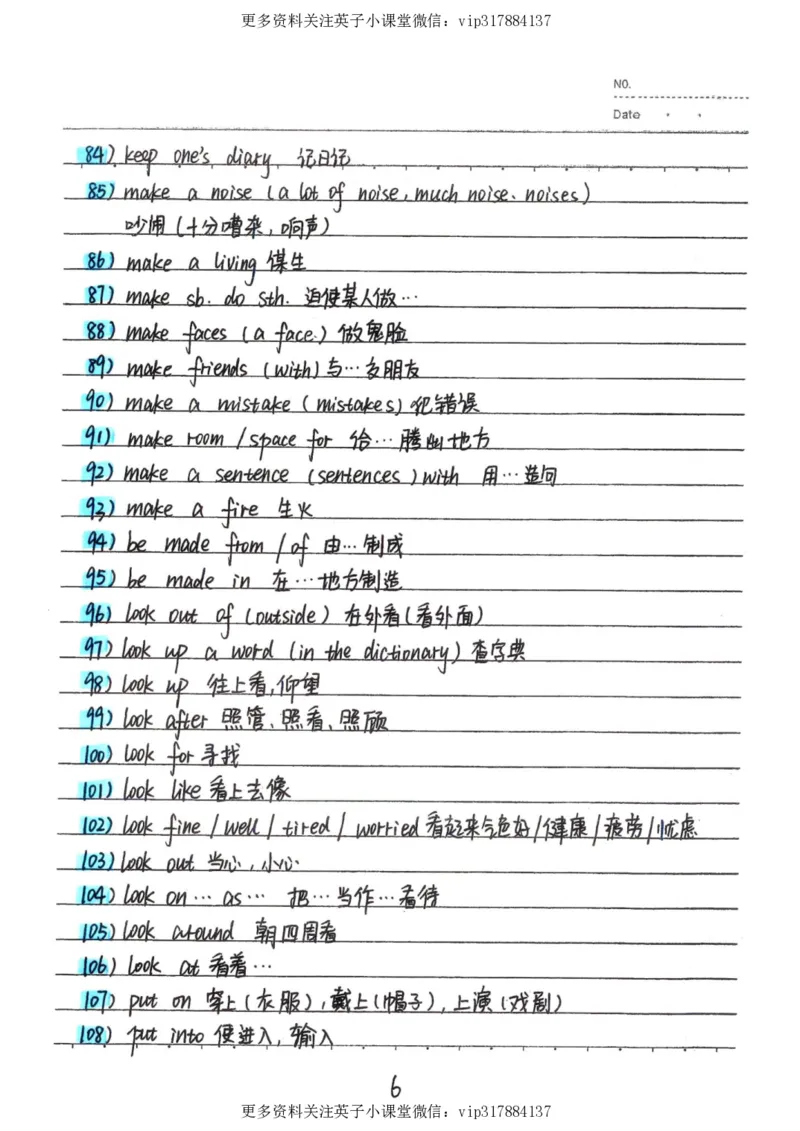 更多资料关注英子小课堂微信：vip317884137
NO.
Date
84) keep one's diary 记日记
85) make a noise (a lot of noise, much noise、noises)
吵闹(十分嘈杂,响声)
86) make a living 谋生
87) make sb. do sth. 迫使某人做…
88) make faces (a face.) 做鬼脸
89) make friends (with) 与…交朋友
90) make a mistake (mistakes) 犯错误
91) make room / space for 给…腾出地方
92) make a sentence (sentences) with 用…造句
93) make a fire 生火
94) be made from / of 由…制成
95) be made in 在…地方制造
96) look out of (outside) 在外看(看外面)
97) look up a word (in the dictionary) 查字典
98) look up 往上看,仰望
99) look after 照管、照看、照顾
100) look for 寻找
101) look like 看上去像
102) look fine / well / tired / worried 看起来气色好/健康/疲劳/忧虑
103) look out 当心,小心
104) look on … as … 把…当作…看待
105) look around 朝四周看
106) look at 看着…
107) put on 穿上(衣服),戴上(帽子),上演(戏剧)
108) put into 使进入,输入
6
更多资料关注英子小课堂微信：vip317884137